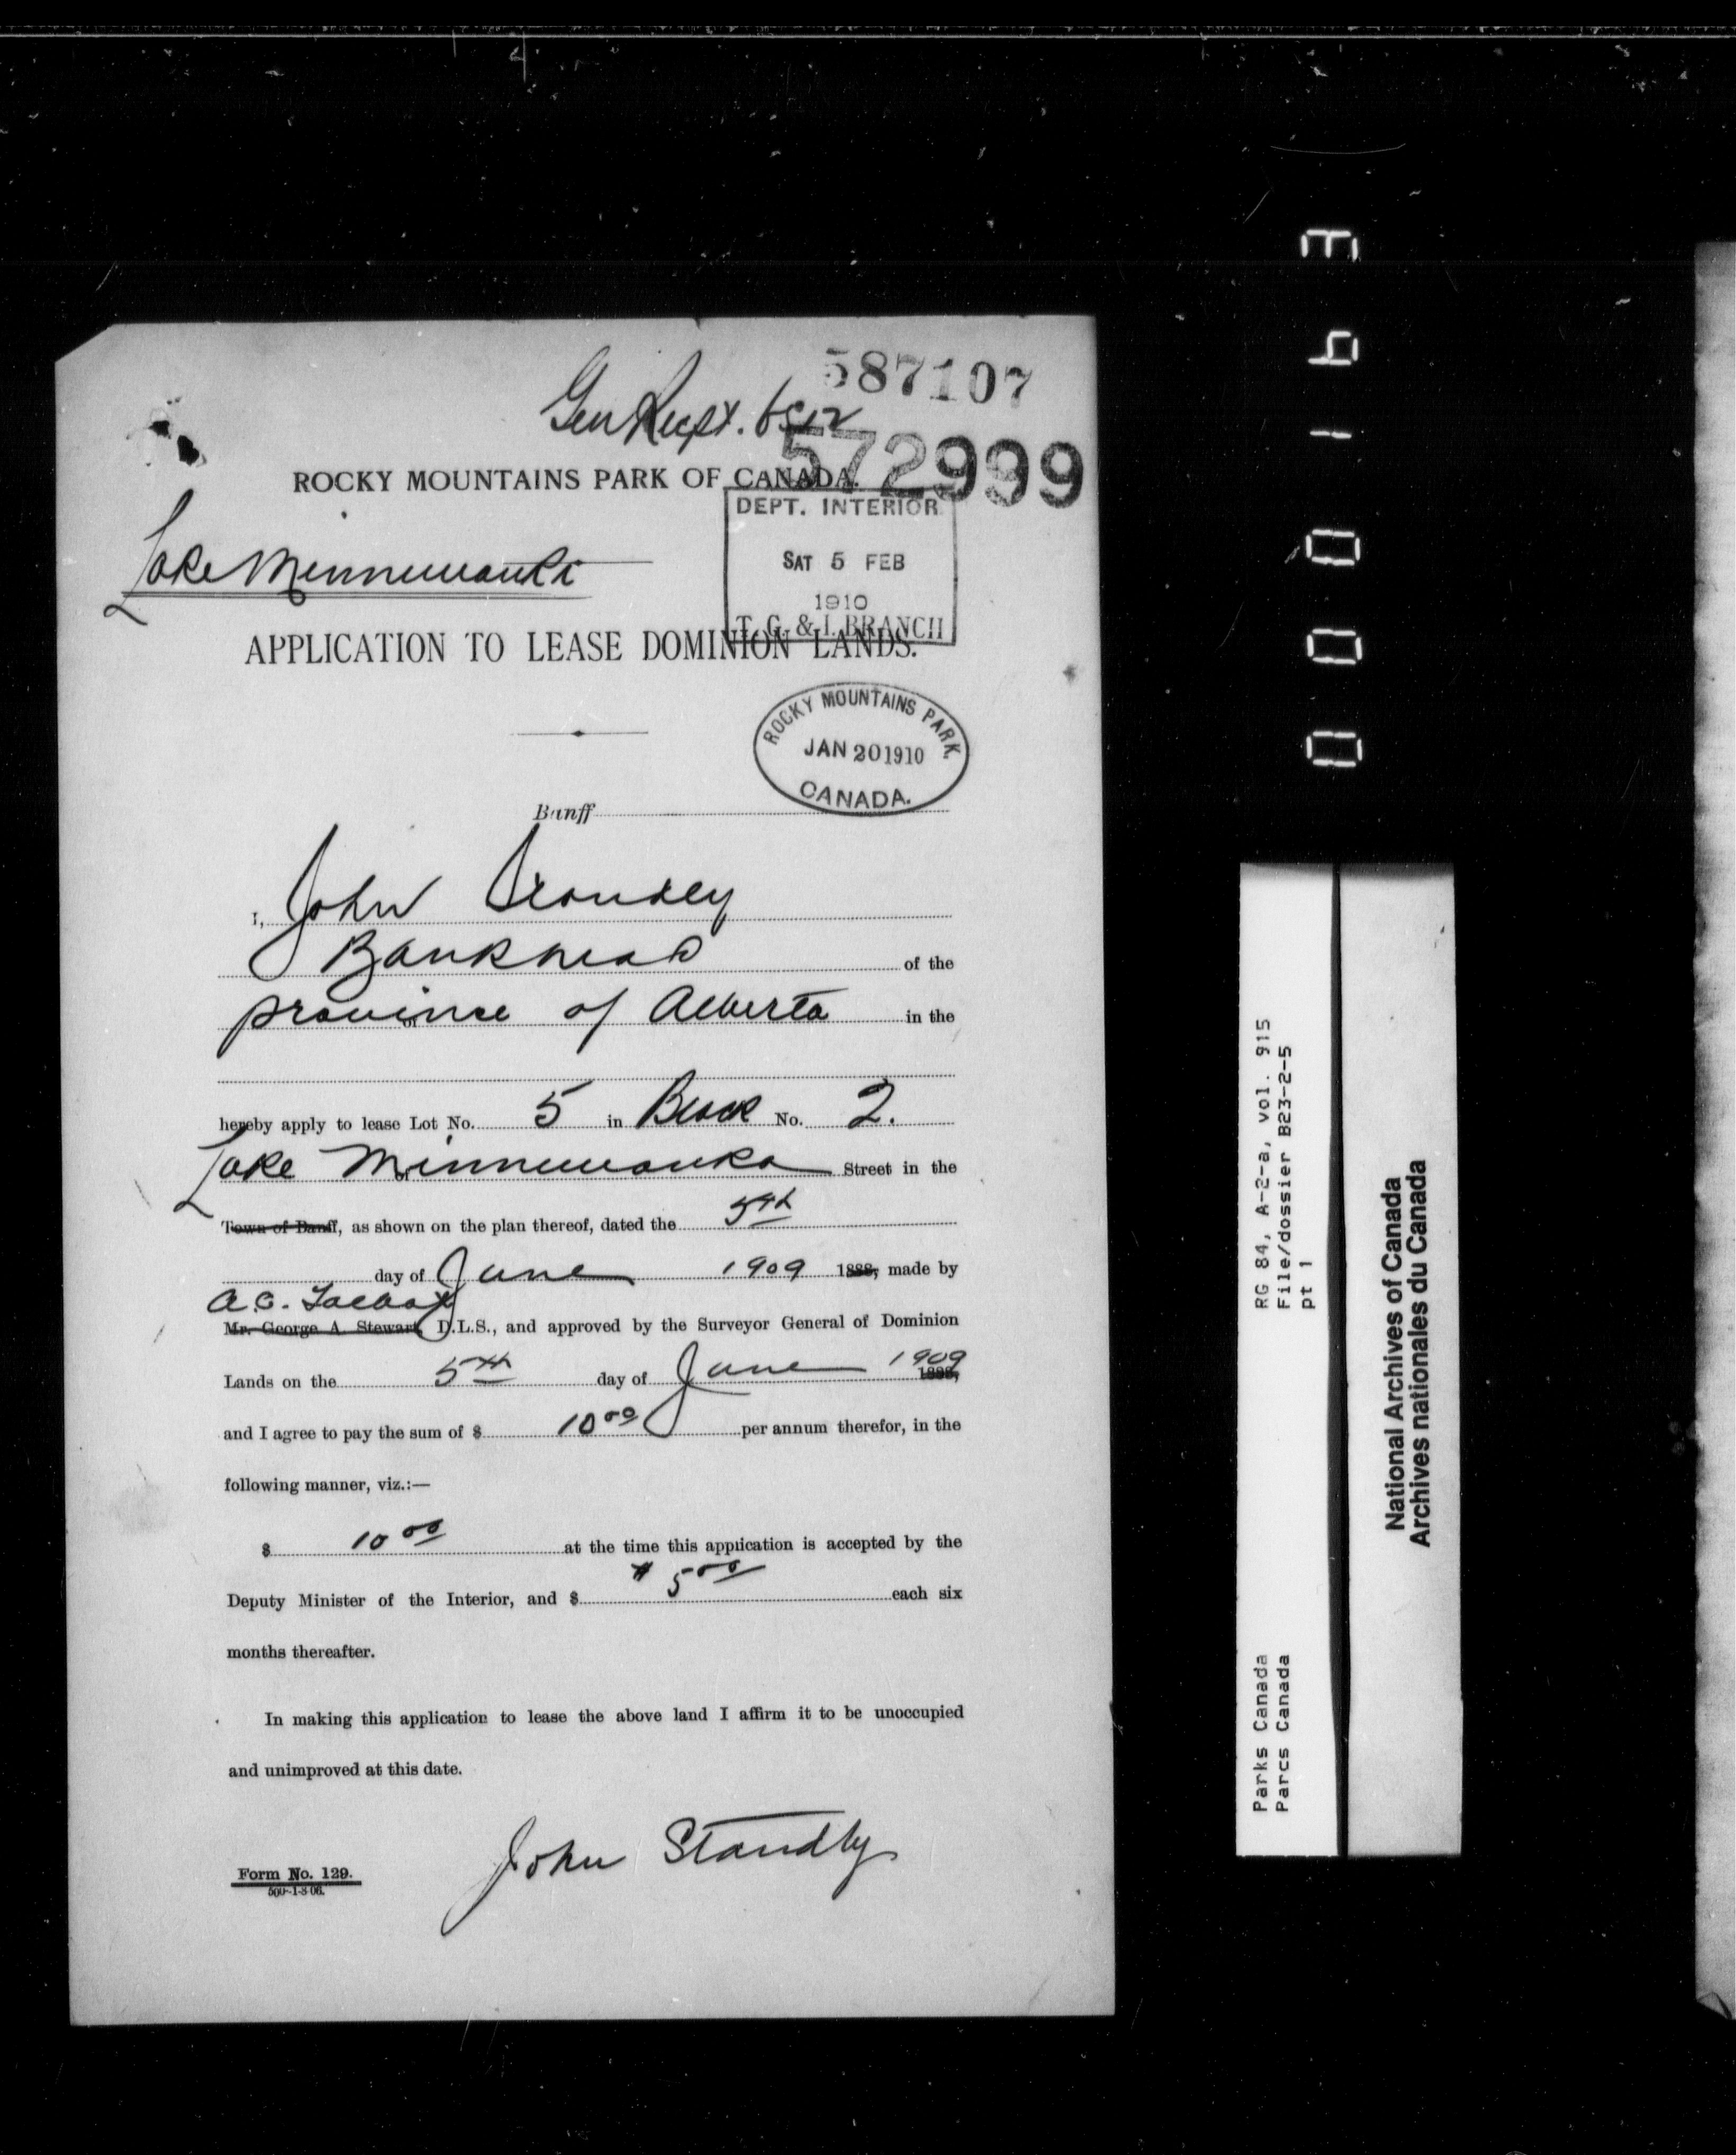 587107
Gen Recpt.
572999
ROCKY MOUNTAINS PARK OF CANADA.
DEPT. INTERIOR
SAT 5 FEB
1910
T. G. & I. BRANCH
Lake Minnewanka
APPLICATION TO LEASE DOMINION LANDS.
ROCKY MOUNTAINS PARK.
JAN 20 1910
CANADA.
Banff
I, John Standley
Bankhead of the
province of Alberta in the
hereby apply to lease Lot No. 5 in Block No. 2.
Lake Minnewanka Street in the
Town of Banff, as shown on the plan thereof, dated the 5th
day of June 1909 1888, made by
A.C. Talbot
Mr. George A. Stewart, D.L.S., and approved by the Surveyor General of Dominion
Lands on the 5th day of June 1909 1888,
and I agree to pay the sum of $ 10 00 per annum therefor, in the
following manner, viz.:—
$ 10 00 at the time this application is accepted by the
Deputy Minister of the Interior, and $ 5 00 each six
months thereafter.
In making this application to lease the above land I affirm it to be unoccupied
and unimproved at this date.
John Standly
Form No. 129.
500-1-8 06.
RG 84, A-2-a, vol. 915
File/dossier B23-2-5
pt 1
Parks Canada
Parcs Canada
National Archives of Canada
Archives nationales du Canada